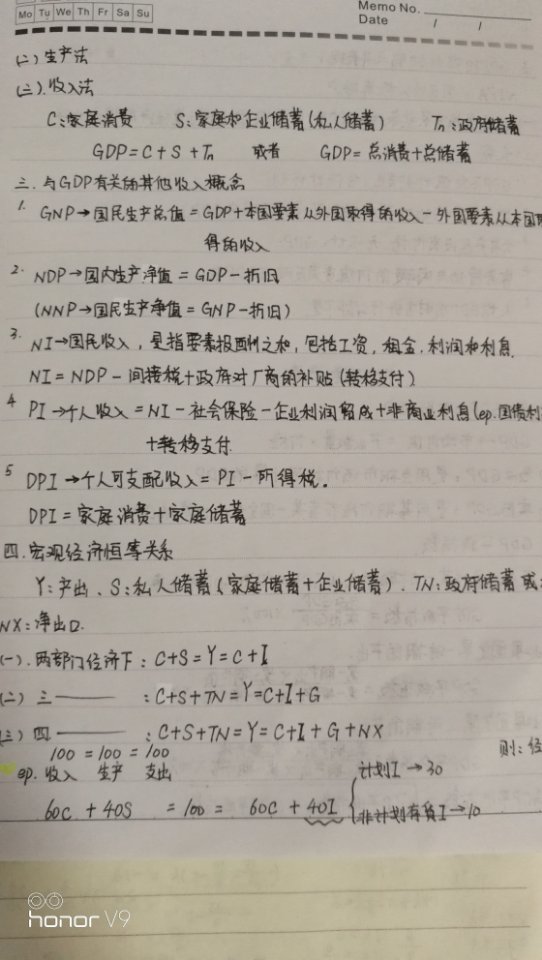 Mo Tu We Th Fr Sa Su
Memo No.
Date / /
(二) 生产法
(三). 收入法
C:家庭消费 S:家庭和企业储蓄(私人储蓄) Tn:政府储蓄
GDP=C+S+Tn 或者 GDP=总消费+总储蓄
三.与GDP有关的其他收入概念
1. GNP→国民生产总值=GDP+本国要素从外国取得的收入-外国要素从本国
得的收入
2. NDP→国内生产净值=GDP-折旧
(NNP→国民生产净值=GNP-折旧)
3. NI→国民收入,是指要素报酬之和,包括工资,租金,利润和利息.
NI=NDP-间接税+政府对厂商的补贴(转移支付)
4 PI→个人收入=NI-社会保险-企业利润留成+非商业利息(ep.国债利
+转移支付
5 DPI→个人可支配收入=PI-所得税.
DPI=家庭消费+家庭储蓄
四.宏观经济恒等关系
Y:产出、S:私人储蓄(家庭储蓄+企业储蓄).TN:政府储蓄 或
NX:净出口.
(一).两部门经济下:C+S=Y=C+I
(二) 三——— :C+S+TN=Y=C+I+G
(三) 四——— :C+S+TN=Y=C+I+G+NX
100=100=100 则:
ep.收入 生产 支出 计划I→30
60C+40S =100= 60C+40I 非计划存货I→10
honor V9